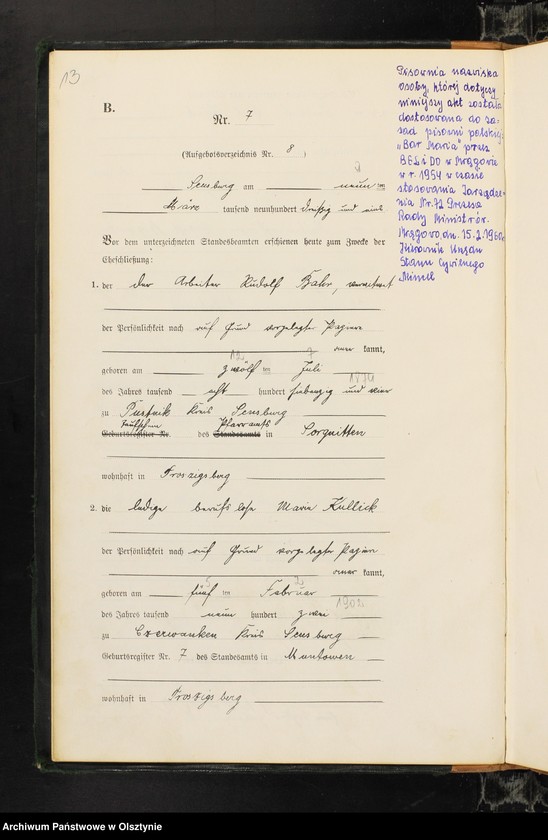 13
B.
Nr. 7
(Aufgebotsverzeichnis Nr. 8)
Sensburg am neun ten
März tausend neunhundert dreißig und eins
Vor dem unterzeichneten Standesbeamten erschienen heute zum Zwecke der
Eheschließung:
1. der der Arbeiter Rudolf Bahr, verwitwet
der Persönlichkeit nach auf Grund vorgelegter Papiere
aner kannt,
12 7
geboren am zwölf ten Juli
1874
des Jahres tausend acht hundert siebenzig und vier
zu Pustnik Kreis Sensburg
Taufschein Pfarramts
Geburtsregister Nr. des Standesamts in Sorquitten
wohnhaft in Proszigsberg
2. die ledige berufslose Marie Kullick
der Persönlichkeit nach auf Grund vorgelegter Papiere
aner kannt,
5 2
geboren am fünf ten Februar
1902
des Jahres tausend neun hundert zwei
zu Czerwanken Kreis Sensburg
Geburtsregister Nr. 7 des Standesamts in Muntowen
wohnhaft in Proszigsberg
Pisownia nazwiska
osoby, której dotyczy
niniejszy akt została
dostosowana do za-
sad pisowni polskiej
„Bar Maria" przez
BESiDO w Mrągowie
w r. 1954 w czasie
stosowania Zarządze-
nia Nr. 72 Prezesa
Rady Ministrów.
Mrągowo, dn. 15.2.1960
Kierownik Urzędu
Stanu Cywilnego
Archiwum Państwowe w Olsztynie